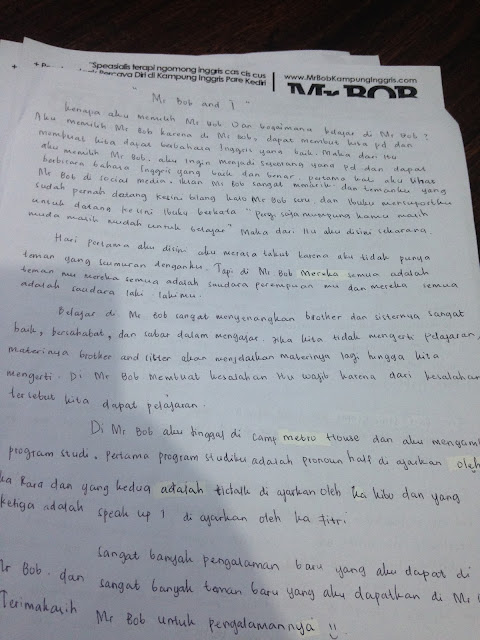 "Speasialis terapi ngomong inggris cas cis cus
Percaya Diri di Kampung Inggris Pare Kediri
www.MrBobKampungInggris.com
Mr BOB
"Mr Bob and I"
kenapa aku memilih Mr Bob Dan bagaimana belajar di Mr Bob?
Aku memilih Mr Bob karena di Mr Bob, dapat membut kita pd dan
membuat kita dapat berbahasa Inggris yang baik. Maka dari itu
aku memilih Mr Bob, aku ingin menjadi seseorang yang pd dan dapat
berbicara bahasa Inggris yang baik dan benar. pertama kali aku lihat
Mr Bob di social media, iklan Mr Bob sangat menarik dan temanku yang
sudah pernah datang kesini bilang kalo Mr Bob seru. dan Ibuku mensupportku
untuk datang ke sini Ibuku berkata "Pergi saja mumpung kamu masih
muda masih mudah untuk belajar" Maka dari itu aku disini sekarang.
Hari pertama aku disini aku merasa takut karena aku tidak punya
teman yang seumuran denganku. Tapi di Mr Bob Mereka semua adalah
teman mu mereka semua adalah saudara perempuan mu dan mereka semua
adalah saudara laki lakimu.
Belajar di Mr Bob sangat menyenangkan brother dan sisternya sangat
baik, bersahabat, dan sabar dalam mengajar. Jika kita tidak mengerti pelajaran,
materinya brother and sister akan menjelaskan materinya lagi hingga kita
mengerti. Di Mr Bob membuat kesalahan itu wajib karena dari kesalahan
tersebut kita dapat pelajaran.
Di Mr Bob aku tinggal di camp metro House dan aku mengambi
program studi. pertama program studiku adalah pronoun half di ajarkan oleh
ka Rara dan yang kedua adalah tictalk di ajarkan oleh ka Kibo dan yang
ketiga adalah speak up 1 di ajarkan oleh ka Fitri
sangat banyak pengalaman baru yang aku dapat di
Mr Bob. dan sangat banyak teman baru yang aku dapatkan di Mr
Terimakasih Mr Bob untuk pengalamannya